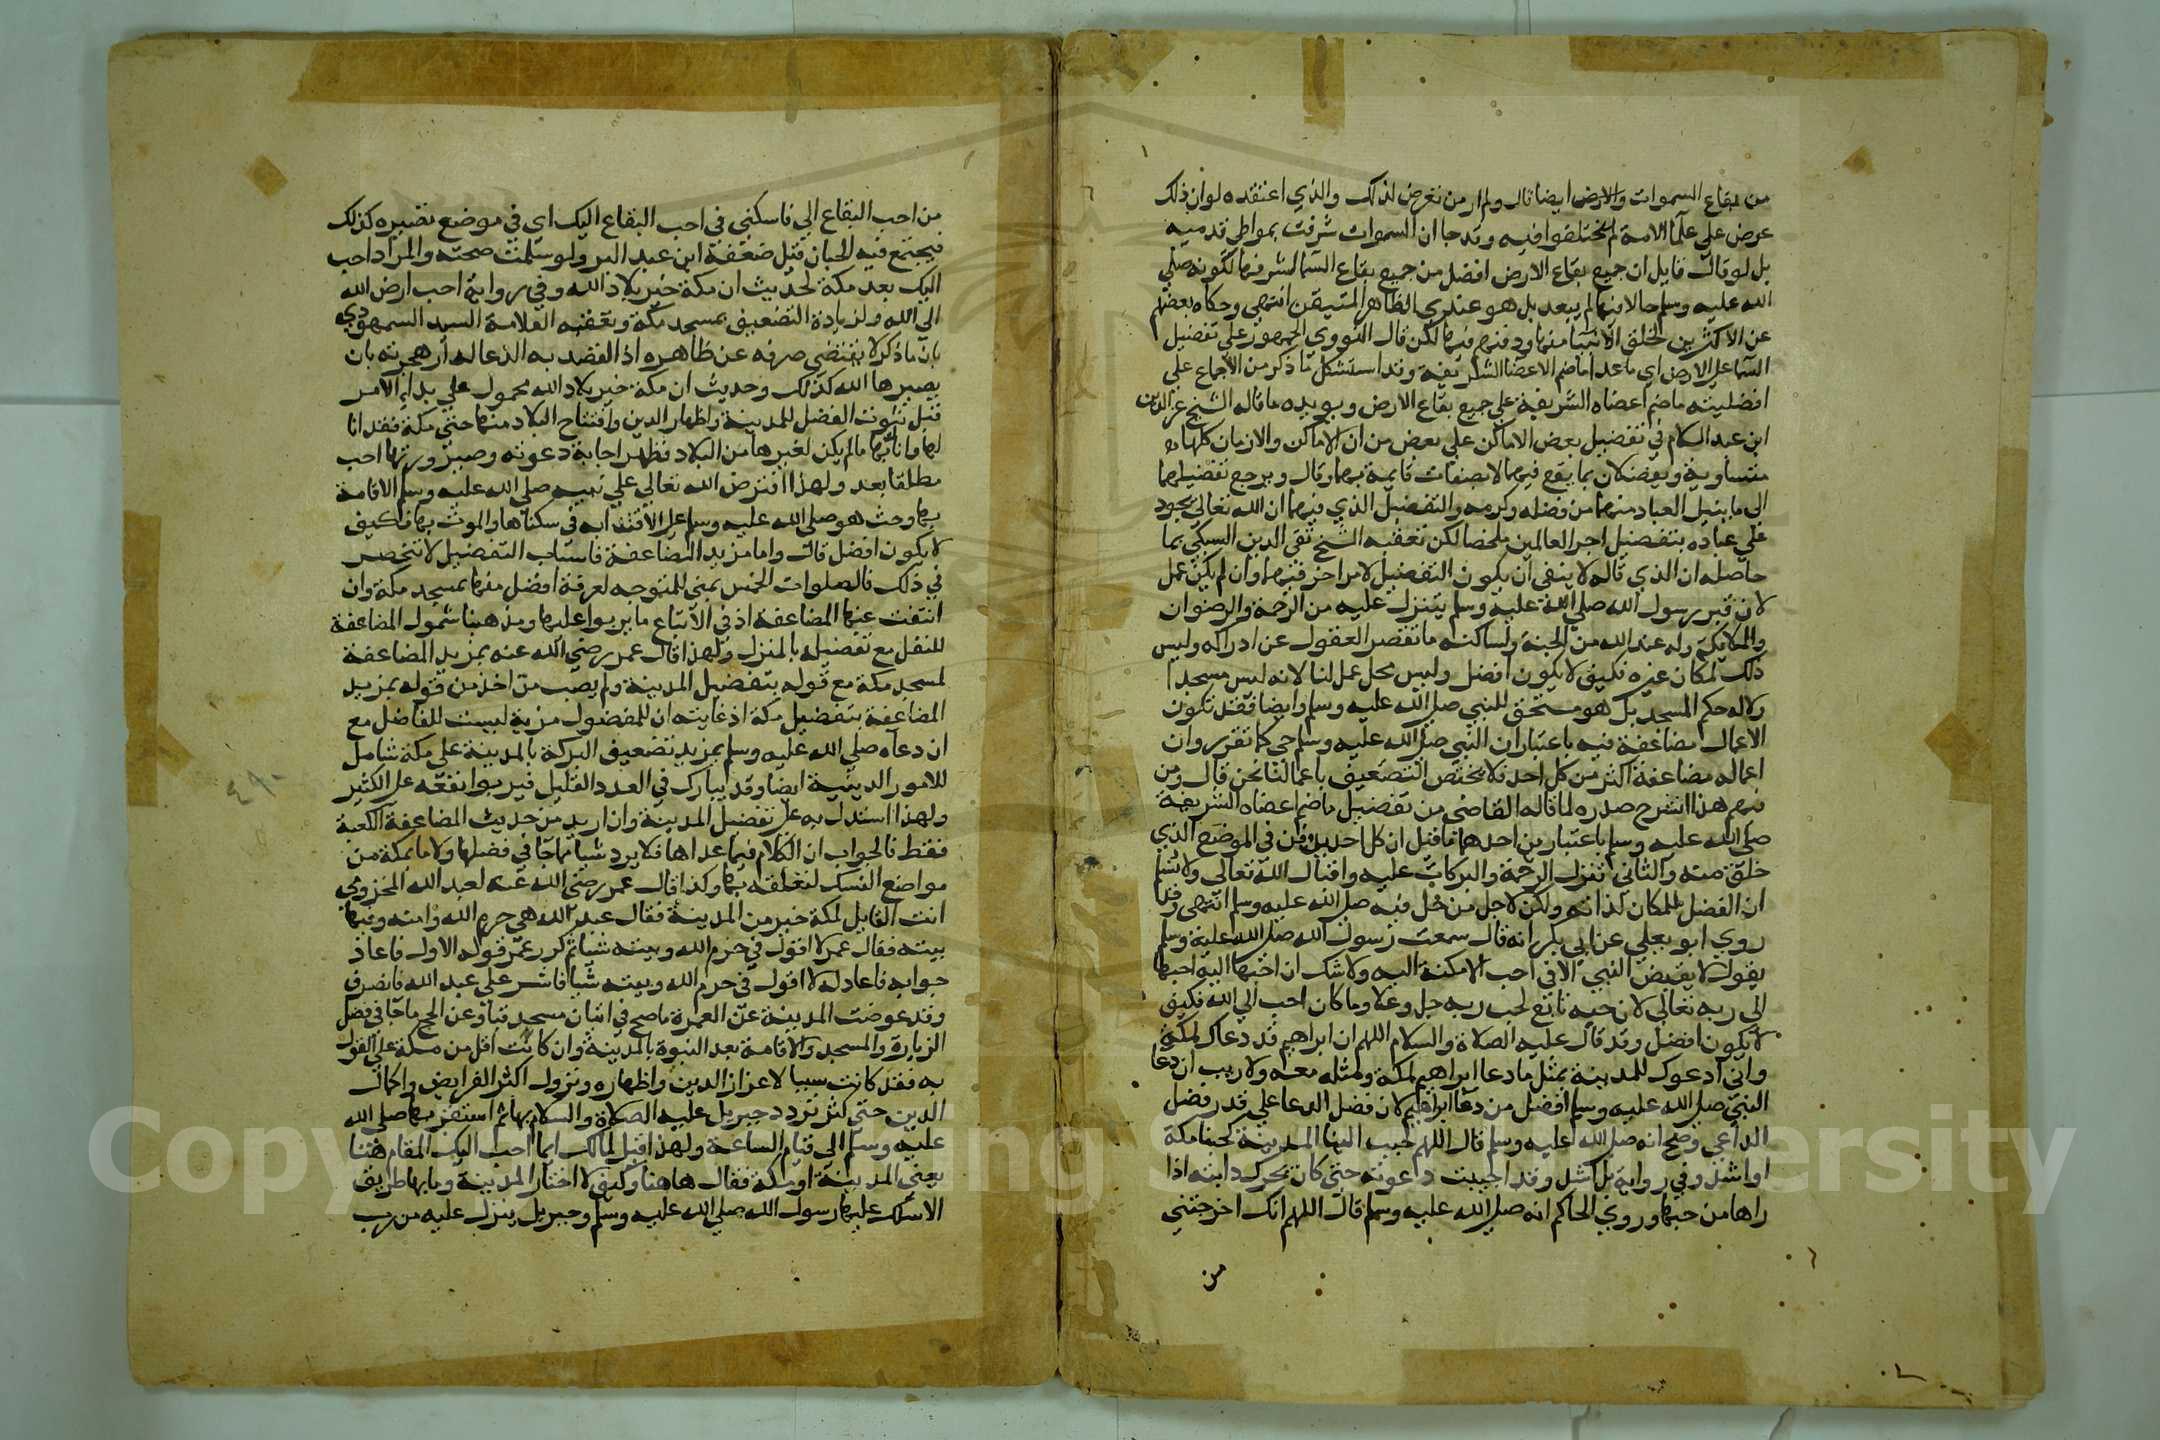 من بقاع السموات والارض ايضا قال ولم ار من تعرض لذلك والذي اعتقده لو ان ذلك
عرض علي علما الامة لم يختلفوا فيه وقد جا ان السموات شرفت بمواطي قدميه
بل لو قال قايل ان جميع بقاع الارض افضل من جميع بقاع السما لشرفها لكونه صلي
الله عليه وسلم حالا فيها لم يبعد بل هو عندي الظاهر المتيقن انتهي وحكاه بعضهم
عن الاكثرين لخلق الانبيا منها ودفنهم فيها لكن قال النووي الجمهور علي تفضيل
السما علي الارض اي ما عدا ما ضم الاعضا الشريفة وقد استشكل ما ذكر من الاجماع علي
افضلية ما ضم اعضاه الشريفة علي جميع بقاع الارض ويويده ما قاله الشيخ عز الدين
ابن عبد السلام في تفضيل بعض الاماكن علي بعض من ان الاماكن والازمان كلها
متساوية ويفضلان بما يقع فيهما لا بصفات قايمة بهما وقال ويرجع تفضيلهما
الي ما ينيل العباد منهما من فضله وكرمه والتفضيل الذي فيهما ان الله تعالي يجود
علي عباده بتفضيل اجر العالمين ملخصا لكن تعقبه الشيخ تقي الدين السبكي بما
حاصله ان الذي قاله لا ينفي ان يكون التفضيل لامر اخر فيهما وان لم يكن عمل
لان قبر رسول الله صلي الله علية وسلم يتنزل عليه من الرحمة والرضوان
والملايكة وله عند الله من المحبة ولساكنه ما تقصر العقول عن ادراكه وليس
ذلك لمكان غيره فكيف لا يكون افضل وليس محل عمل لنا لانه ليس مسجدا
ولا له حكم المسجد بل هو مستحق للنبي صلي الله عليه وسلم وايضا فقد تكون
الاعمال مضاعفة فيه باعتبار ان النبي صلي الله عليه وسلم حي كما تقرر وان
اعماله مضاعفة اكثر من كل احد فلا يختص التضعيف باعمالنا نحن قال ومن
فهم هذا انشرح صدره لما قاله القاضي من تفضيل ما ضم اعضاه الشريفة
صلي الله عليه وسلم باعتبارين احدهما ما قيل ان كل احد يدفن في الموضع الذي
خلق منه والثاني تنزل الرحمة والبركات عليه واقبال الله تعالي ولا نسلم
ان الفضل للمكان لذاته ولكن لاجل من حل فيه صلي الله عليه وسلم انتهي وقد
روي ابو يعلي عن ابي بكر انه قال سمعت رسول الله صلي الله علية وسلم
يقول لا يقبض النبي الا في احب الامكنة اليه ولا شك ان احبها اليه احبها
الي ربه تعالي لان حبه تابع لحب ربه جل وعلا وما كان احب الي الله فكيف
لا يكون افضل وقد قال عليه الصلاة والسلام اللهم ان ابراهيم قد دعاك لمكة
واني ادعوك للمدينة بمثل ما دعا ابراهيم لمكة ومثله معه ولا ريب ان دعا
النبي صلي الله عليه وسلم افضل من دعا ابراهيم لان فضل الدعا علي قدر فضل
الداعي وصح انه صلي الله عليه وسلم قال اللهم حبب الينا المدينة كحبنا مكة
او اشد وفي رواية بل اشد وقد اجيبت دعوته حتي كان يحرك دابته اذا
راها من حبها وروي الحاكم انه صلي الله عليه وسلم قال اللهم انك اخرجتني
من
من احب البقاع الي فاسكني في احب البقاع اليك اي في موضع تصيره كذلك
فيجتمع فيه الحبان قيل ضعفه ابن عبد البر ولو سلمت صحته والمراد احب
اليك بعد مكة لحديث ان مكة خير بلاد الله وفي رواية احب ارض الله
الي الله ولزيادة التضعيف بمسجد مكة وتعقبه العلامة السيد السمهودي
بان ما ذكر لا يقتضي صرفه عن ظاهره اذ القصد به الدعا لدار هجرته بان
يصيرها الله كذلك وحديث ان مكة خير بلاد الله محمول علي بدا الامر
قبل ثبوت الفضل للمدينة واظهار الدين وافتتاح البلاد منها حتي مكة فقد انا
لها وانالها ما لم يكن لغيرها من البلاد فظهر اجابة دعوته وصيرورتها احب
مطلقا بعد ولهذا افترض الله تعالي علي نبيه صلي الله عليه وسلم الاقامة
بها وحث هو صلي الله عليه وسلم علي الاقتدا به في سكناها والموت بها فكيف
لا يكون افضل قال واما مزيد المضاعفة فاسباب التفضيل لا تنحصر
في ذلك فالصلوات الخمس بمني للمتوجه لعرفة افضل منها بمسجد مكة وان
انتفت عنها المضاعفة اذ في الاتباع ما يربوا عليها ومذهبنا شمول المضاعفة
للنفل مع تفضيله بالمنزل ولهذا قال عمر رضي الله عنه بمزيد المضاعفة
لمسجد مكة مع قوله بتفضيل المدينة ولم يصب من اخذ من قوله بمزيد
المضاعفة بتفضيل مكة اذ غايته ان للمفضول مزية ليست للفاضل مع
ان دعاه صلي الله عليه وسلم بمزيد تضعيف البركة بالمدينة علي مكة شامل
للامور الدينية ايضا وقد يبارك في العدد القليل فيربوا نفعه علي الكثير
ولهذا استدل به علي تفضيل المدينة وان اريد من حديث المضاعفة الكعبة
فقط فالجواب ان الكلام فيما عداها فلا يرد شيا مما جا في فضلها ولا ما بمكة من
مواضع النسك لتعلقه بها وكذا قال عمر رضي الله عنه لعبد الله المخزومي
انت القايل لمكة خير من المدينة فقال عبد الله هي حرم الله وامنه وفيها
بيته فقال عمر لا اقول في حرم الله وبيته شيا ثم كرر عمر قوله الاول فاعاذ
جوابه فاعاد له لا اقول في حرم الله وبيته شيا فاشر علي عبد الله فانصرف
وقد عوضت المدينة عن العمرة ما صح في اتيان مسجد قبا وعن الحج ما جا في فضل
الزيارة والمسجد والاقامة بعد النبوة بالمدينة وان كانت اقل من مكة علي القول
به فقد كانت سببا لاعزاز الدين واظهاره ونزول اكثر الفرايض واكمال
الدين حتي كثر تردد جبريل عليه الصلاة والسلام بها ثم استقر بها صلي الله
عليه وسلم الي قيام الساعة ولهذا قيل لمالك ايما احب اليك المقام هنا
يعني المدينة او مكة فقال هاهنا وكيف لا اختار المدينة وما بها طريق
الا سلك عليها رسول الله صلي الله عليه وسلم وجبريل ينزل عليه من رب
Copy ing S ersity